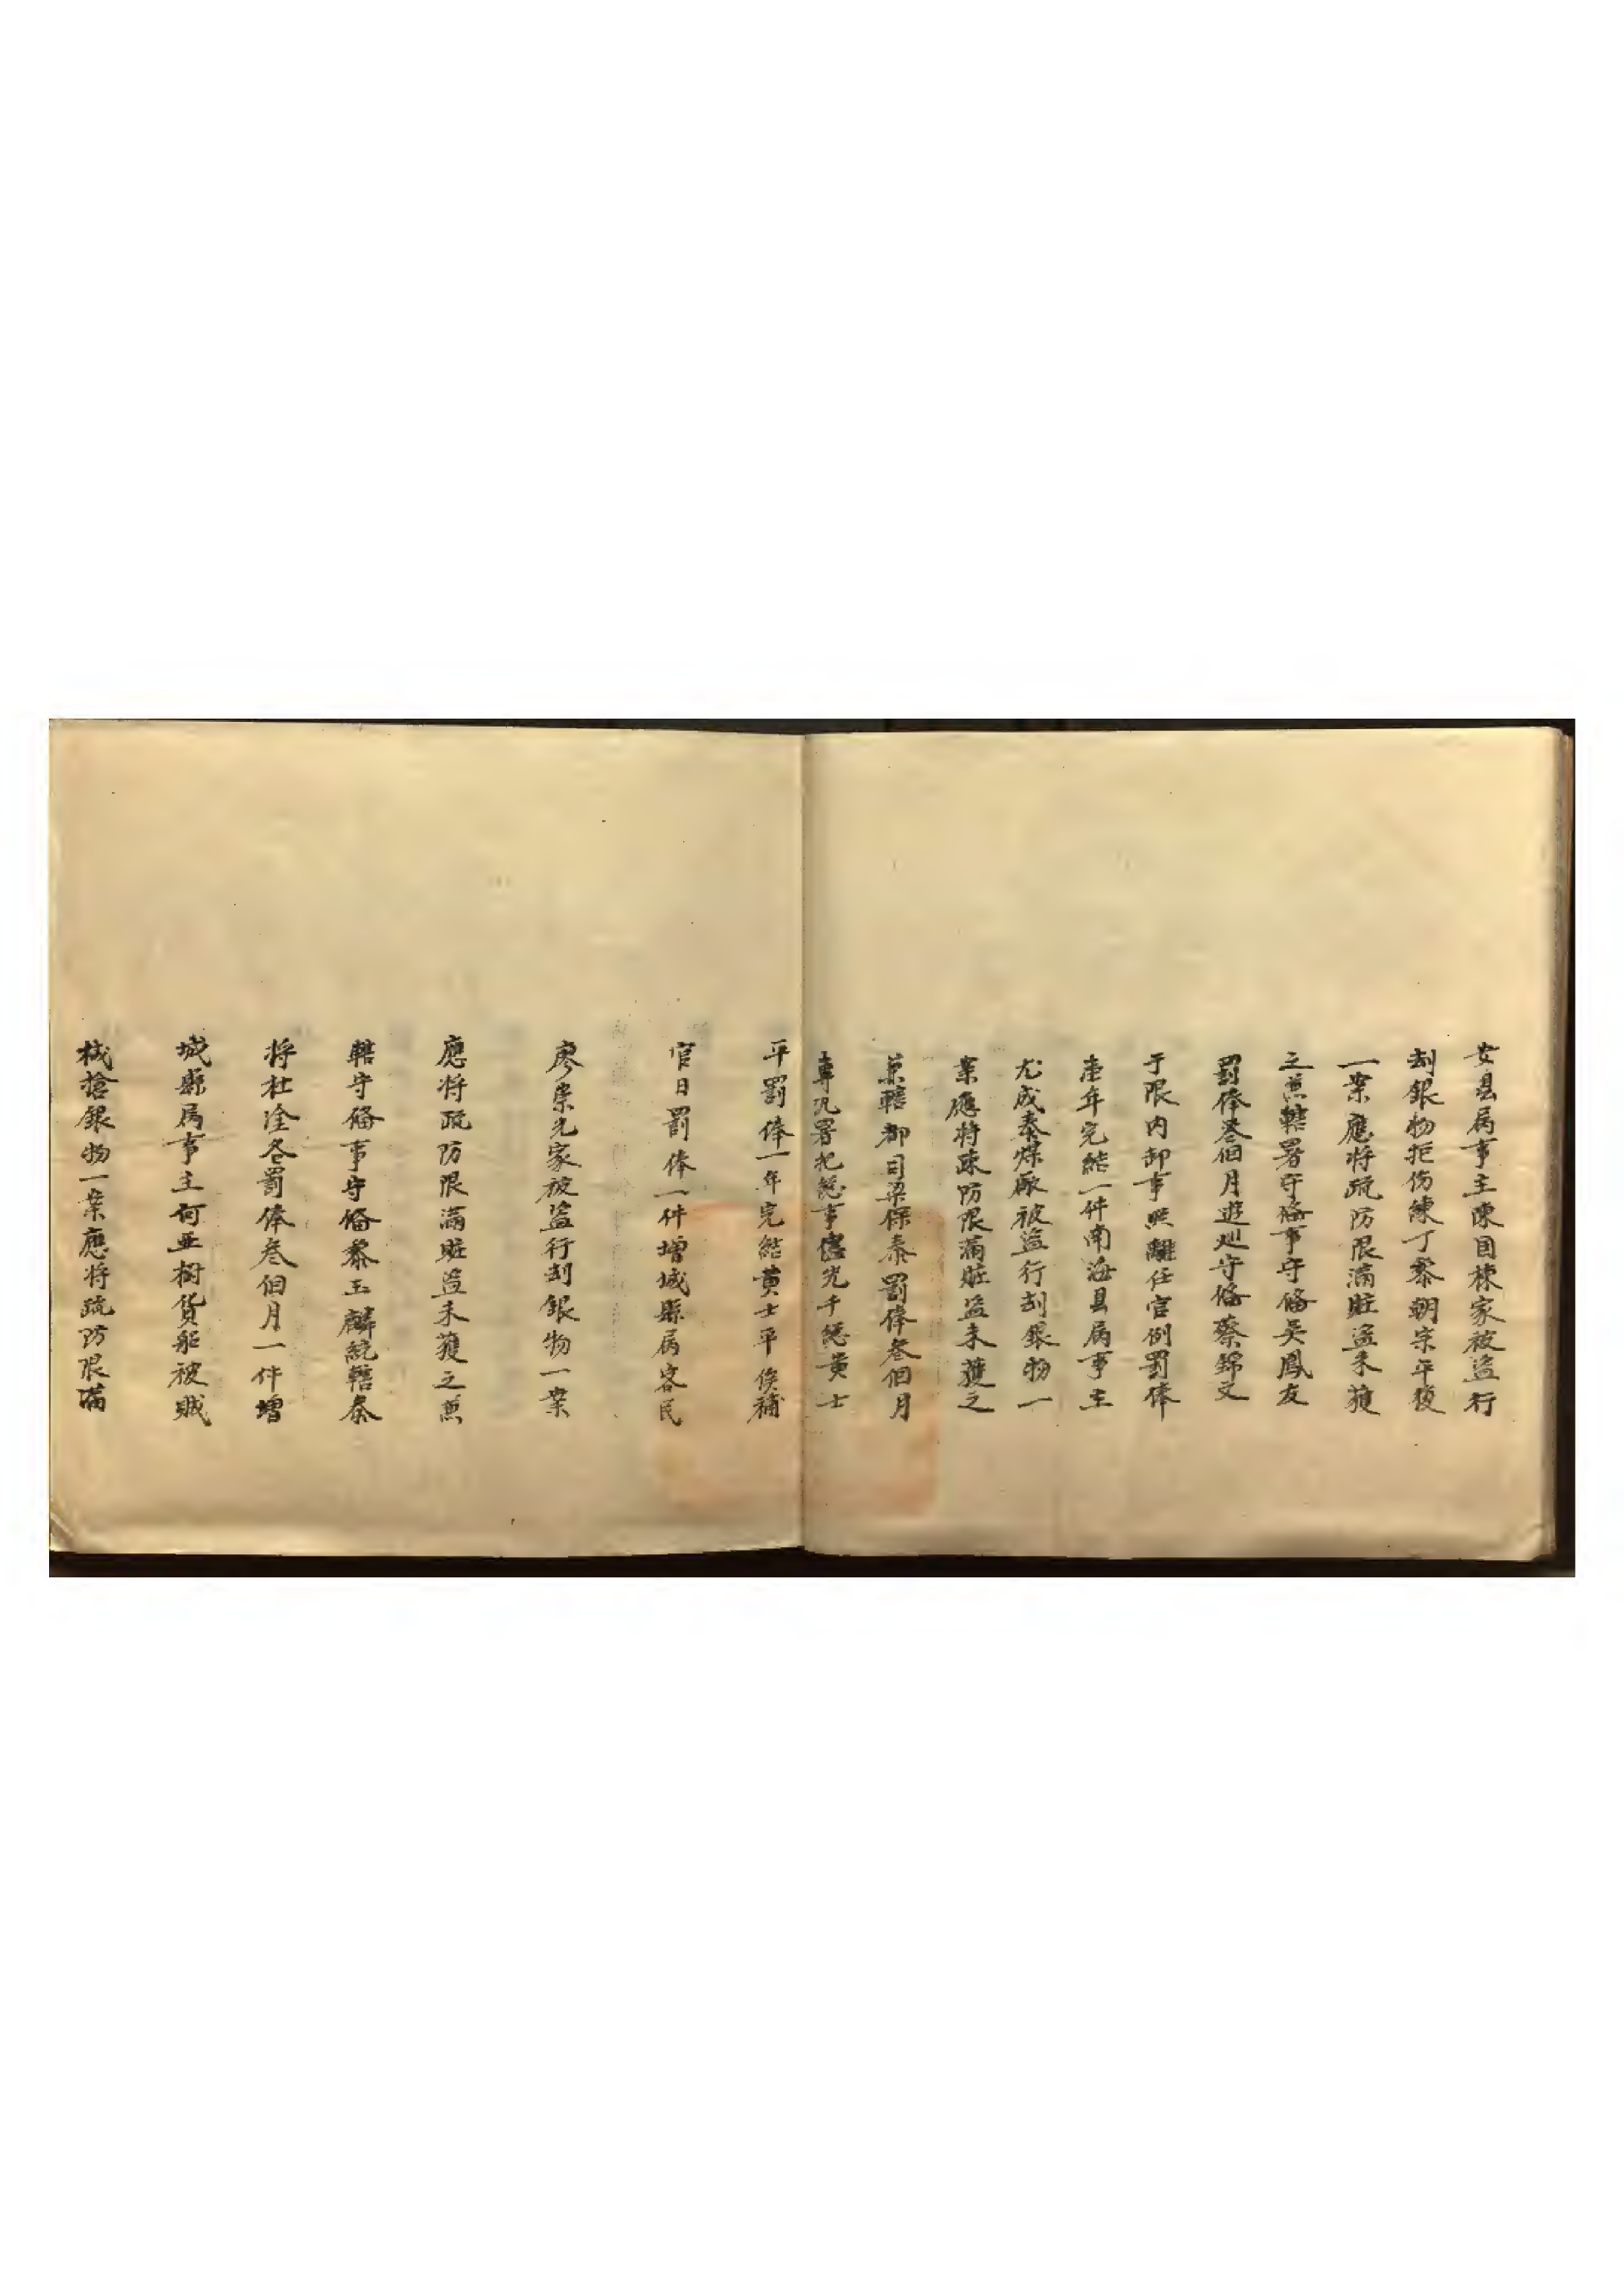 安县属事主陳目棟家被盗行
刼銀物拒伤練丁黎朝宗平復
一案應将疏防限滿賍盗未獲
之蒹轄署守俻事守俻吴鳳友
罰俸叁個月逰廵守俻蔡錦文
于限内卸事照離任官例罰俸
壹年完結一件南海县属事主
尤成泰煤廠被盗行刼銀物一
案應将疎防限滿賍盗未獲之
蒹轄都司梁保泰罰俸叁個月
專汛署把總事儘先千總黄士
平罰俸一年完結黄士平俟補
官日罰俸一件增城縣属客民
廖崇光家被盗行刼銀物一案
應将疏防限滿賍盗未獲之蒹
轄守俻事守俻黎玉麟統轄泰
将杜淦各罰俸叁個月一件增
城縣属事主何亜樹貨船被贼
械搶銀物一案應将疏防限滿